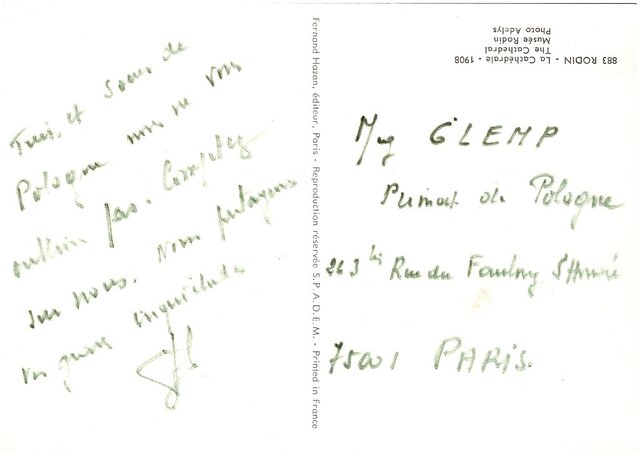 Frères et Sœurs de
Pologne nous ne vous
oublions pas. Comptez
sur nous. Nous partageons
vos graves inquiétudes
Fernand Hazan, éditeur, Paris - Reproduction réservée S.P.A.D.E.M. - Printed in France
883 RODIN - La Cathédrale - 1908
The Cathedral
Musée Rodin
Photo Adelys
Mgr GLEMP
Primat de Pologne
263 bis Rue du Faubourg St Honoré
75001 PARIS.